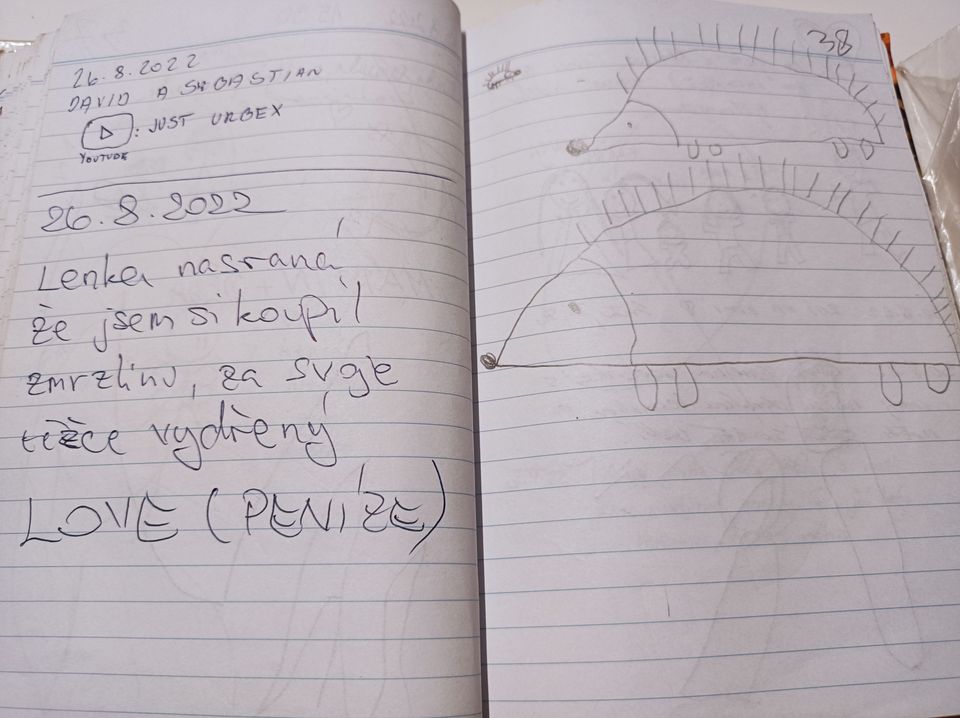 26.8.2022
DAVID A SEBASTIAN
: JUST URBEX
YOUTUBE
26.8.2022
Lenka nasraná,
že jsem si koupil
zmrzlinu, za svoje
těžce vydřený
LOVE (PENÍZE)
38